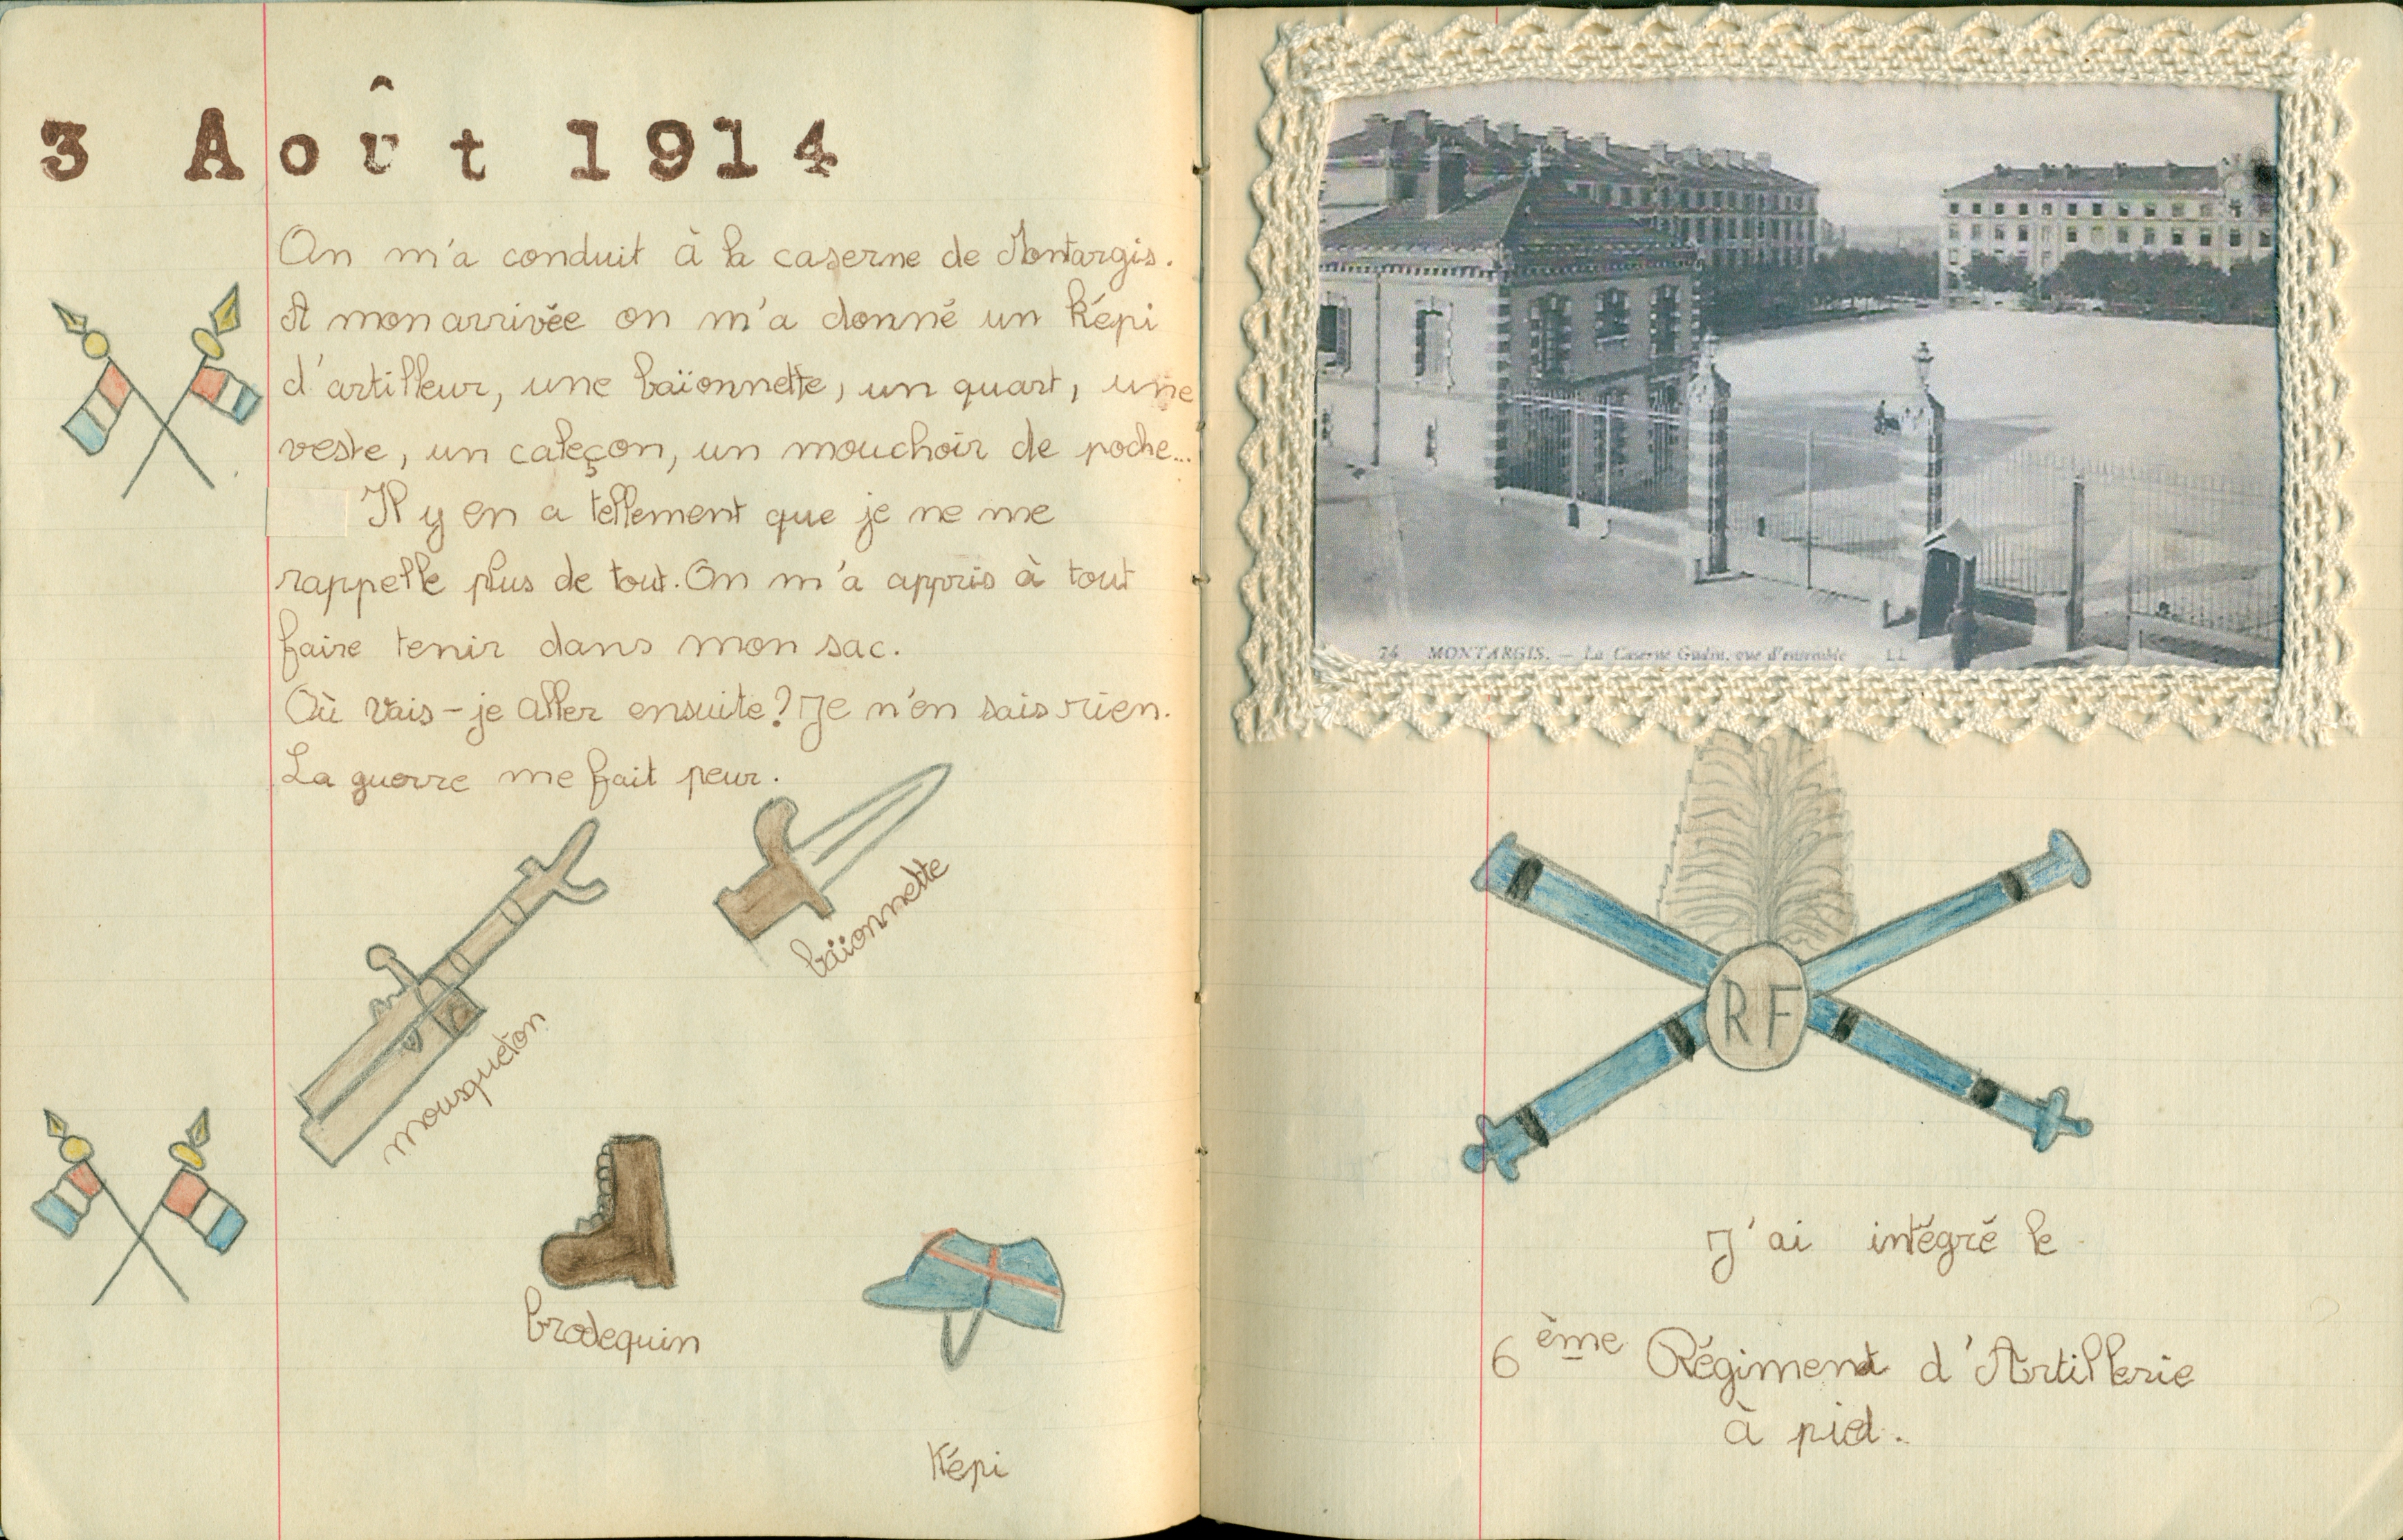 3 Août 1914
On m'a conduit à la caserne de Montargis.
A mon arrivée on m'a donné un képi
d'artilleur, une baïonnette, un quart, une
veste, un caleçon, un mouchoir de poche...
Il y en a tellement que je ne me
rappelle plus de tout. On m'a appris à tout
faire tenir dans mon sac.
Où vais-je aller ensuite? Je n'en sais rien.
La guerre me fait peur.
baïonnette
mousqueton
brodequin
Képi
74 MONTARGIS. — La Caserne Gudin, vue d'ensemble LL
RF
J'ai intégré le
6ème Régiment d'Artillerie
à pied.